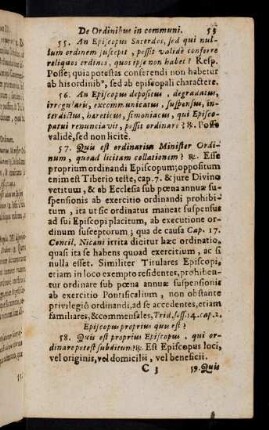 De Ordinibus in communi. 53
55. An Episcopus Sacerdos, sed qui nul-
lum ordinem suscepit, possit validè conferre
reliquos ordines, quos ipse non habet? Resp.
Posse; quia potestas conferendi non habetur
ab his ordinib9, sed ab episcopali charactere.
56. An Episcopus depositus, degradatus,
irregularis, excommunicatus, suspensus, in-
terdictus, hæreticus, simoniacus, qui Episco-
patui renunciavit, possit ordinare? ℞. Posse
validè, sed non licitè.
57. Quis est ordinarius Minister Ordi-
num, quoad licitam collationem? ℞. Esse
proprium ordinandi Episcopum; oppositum
enim est Tiberio teste, cap. 7. & jure Divino
vetitum, & ab Ecclesia sub pœna annuæ sus-
pensionis ab exercitio ordinandi prohibi-
tum, ita ut sic ordinatus maneat suspensus
ad sui Episcopi placitum, ab executione or-
dinum susceptorum; qua de causa Cap. 17.
Concil. Nicæni irrita dicitur hæc ordinatio,
quasi ita se habens quoad exercitium, ac si
nulla esset. Similiter Titulares Episcopi,
etiam in loco exempto residentes, prohiben-
tur ordinare sub pœna annuæ suspensionis
ab exercitio Pontificalium, non obstante
privilegiô ordinandi, ad se accedentes, etiam
familiares, & commensales, Trid. sess. 14. cap. 2.
Episcopus proprius quis est?
58. Quis est proprius Episcopus, qui or-
dinare potest subditum? ℞. Est Episcopus loci,
vel originis, vel domicilii, vel beneficii.
C 3 59. Quis